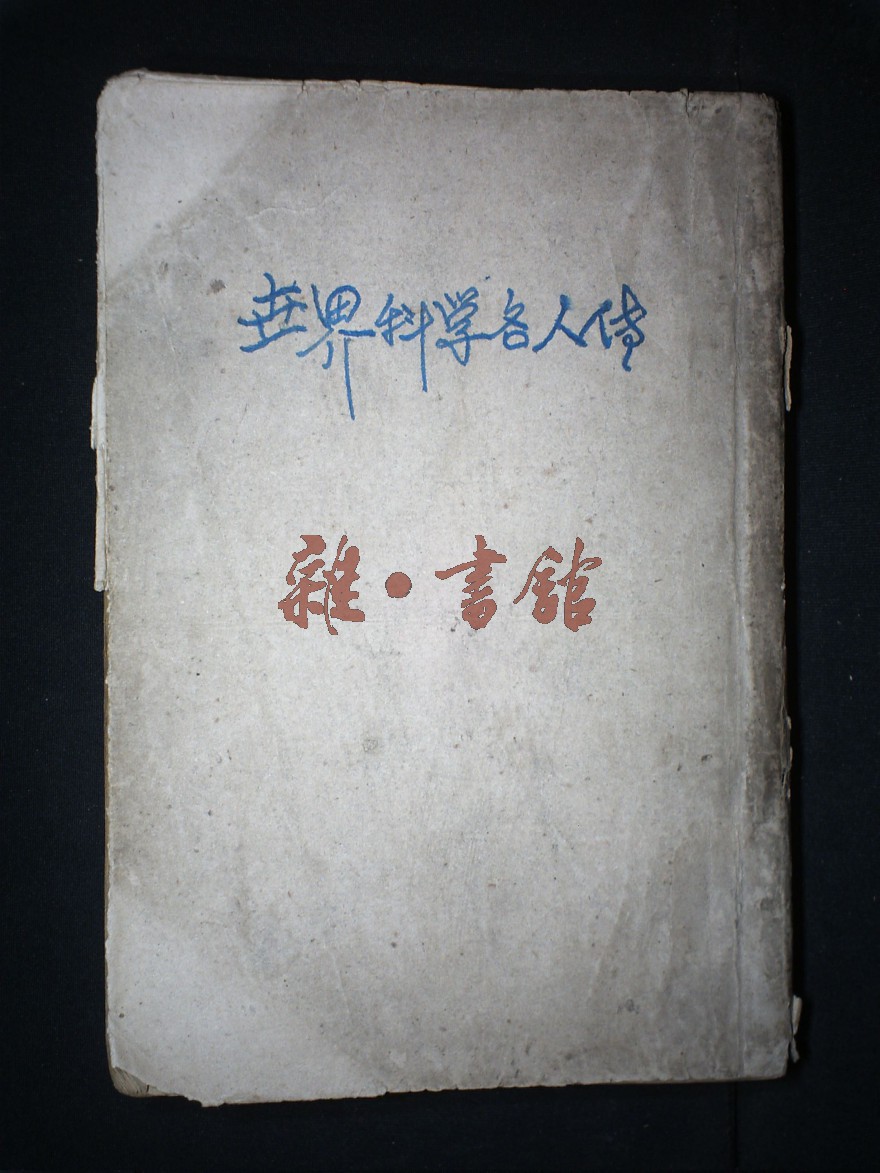 世界科学名人传
雜·書館